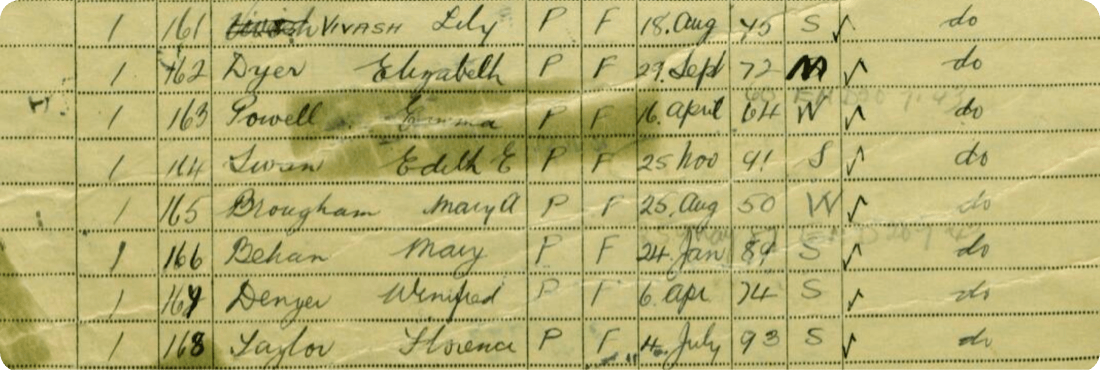 1 161 VIVASH Lily P F 18. Aug 75 S ✓ do
1 162 Dyer Elizabeth P F 29. Sept 72 M ✓ do
1 163 Powell Emma P F 16. April 64 W ✓ do
1 164 Swan Edith E P F 25 Nov 91 S ✓ do
1 165 Brougham Mary A P F 25. Aug 50 W ✓ do
1 166 Behan Mary P F 24. Jan 89 S ✓ do
1 167 Denyer Winifred P F 6. Apr 74 S ✓ do
1 168 Taylor Florence P F 4. July 93 S ✓ do